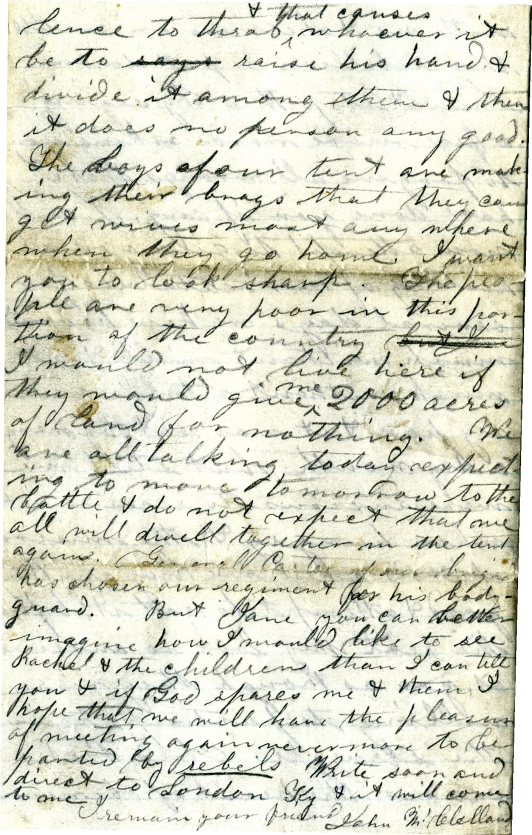 & that causes
lence to throb, whoever it
be to says raise his hand &
divide it among them & then
it does no person any good.
The boys of our tent are mak
ing their brags that they can
get wives most any where
when they go home. I want
you to look sharp. The peo-
ple are very poor in this por-
tion of the country but I
I would not live here if
me
they would give 2000 acres
of land for nothing. We
are all talking today expect
ing to move tomorrow to the
battle & do not expect that we
all will dwell together in the tent
again. General Carter of our
has chosen our regiment for his body-
guard. But Jane you can better
imagine how I would like to see
Rachel & the children than I can tell
you & if God spares me & them I
hope that we will have the pleasure
of meeting again never more to be
parted by rebels Write soon and
direct to London Ky & it will come
to me I remain your friend John McClelland